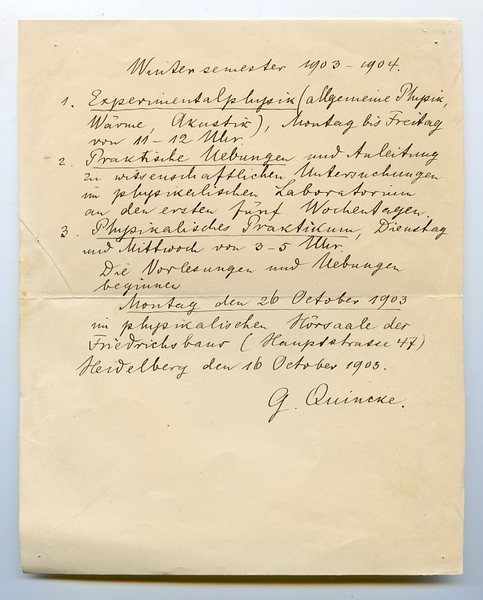 Wintersemester 1903-1904.
1. Experimentalphysik (allgemeine Physik,
Wärme, Akustik), Montag bis Freitag
von 11-12 Uhr.
2. Praktische Uebungen und Anleitung
zu wissenschaftlichen Untersuchungen
im physikalischen Laboratorium
an den ersten fünf Wochentagen.
3. Physikalisches Praktikum, Dienstag
und Mittwoch von 3-5 Uhr.
Die Vorlesungen und Uebungen
beginnen
Montag den 26 October 1903
im physikalischen Hörsaale des
Friedrichsbaus (Hauptstrasse 47)
Heidelberg den 16 October 1903.
G. Quincke.